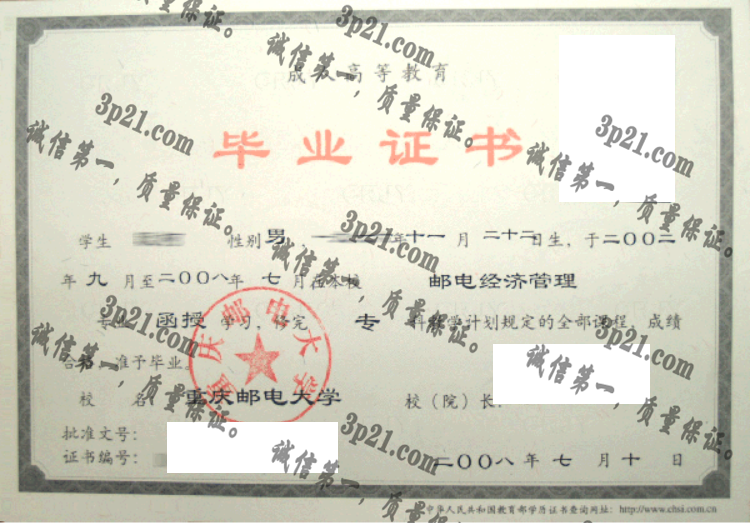 成人高等教育
毕业证书
学生 性别 男 年 十一 月 二十二 日生，于二〇〇二
年 九 月至二〇〇八年 七 月在本校 邮电经济管理
专业 函授 学习，修完 专 科教学计划规定的全部课程，成绩
合格，准予毕业。
校 名 重庆邮电大学 校（院）长：
批准文号：
证书编号： 二〇〇八 年 七 月 十 日
中华人民共和国教育部学历证书查询网址：http://www.chsi.com.cn
重庆邮电大学
3p21.com
诚信第一，质量保证。
3p21.com
诚信第一，质量保证。
3p21.com
诚信第一，质量保证。
3p21.com
诚信第一，质量保证。
3p21.com
诚信第一，质量保证。
3p21.com
诚信第一，质量保证。
3p21.com
诚信第一，质量保证。
3p21.com
诚信第一，质量保证。